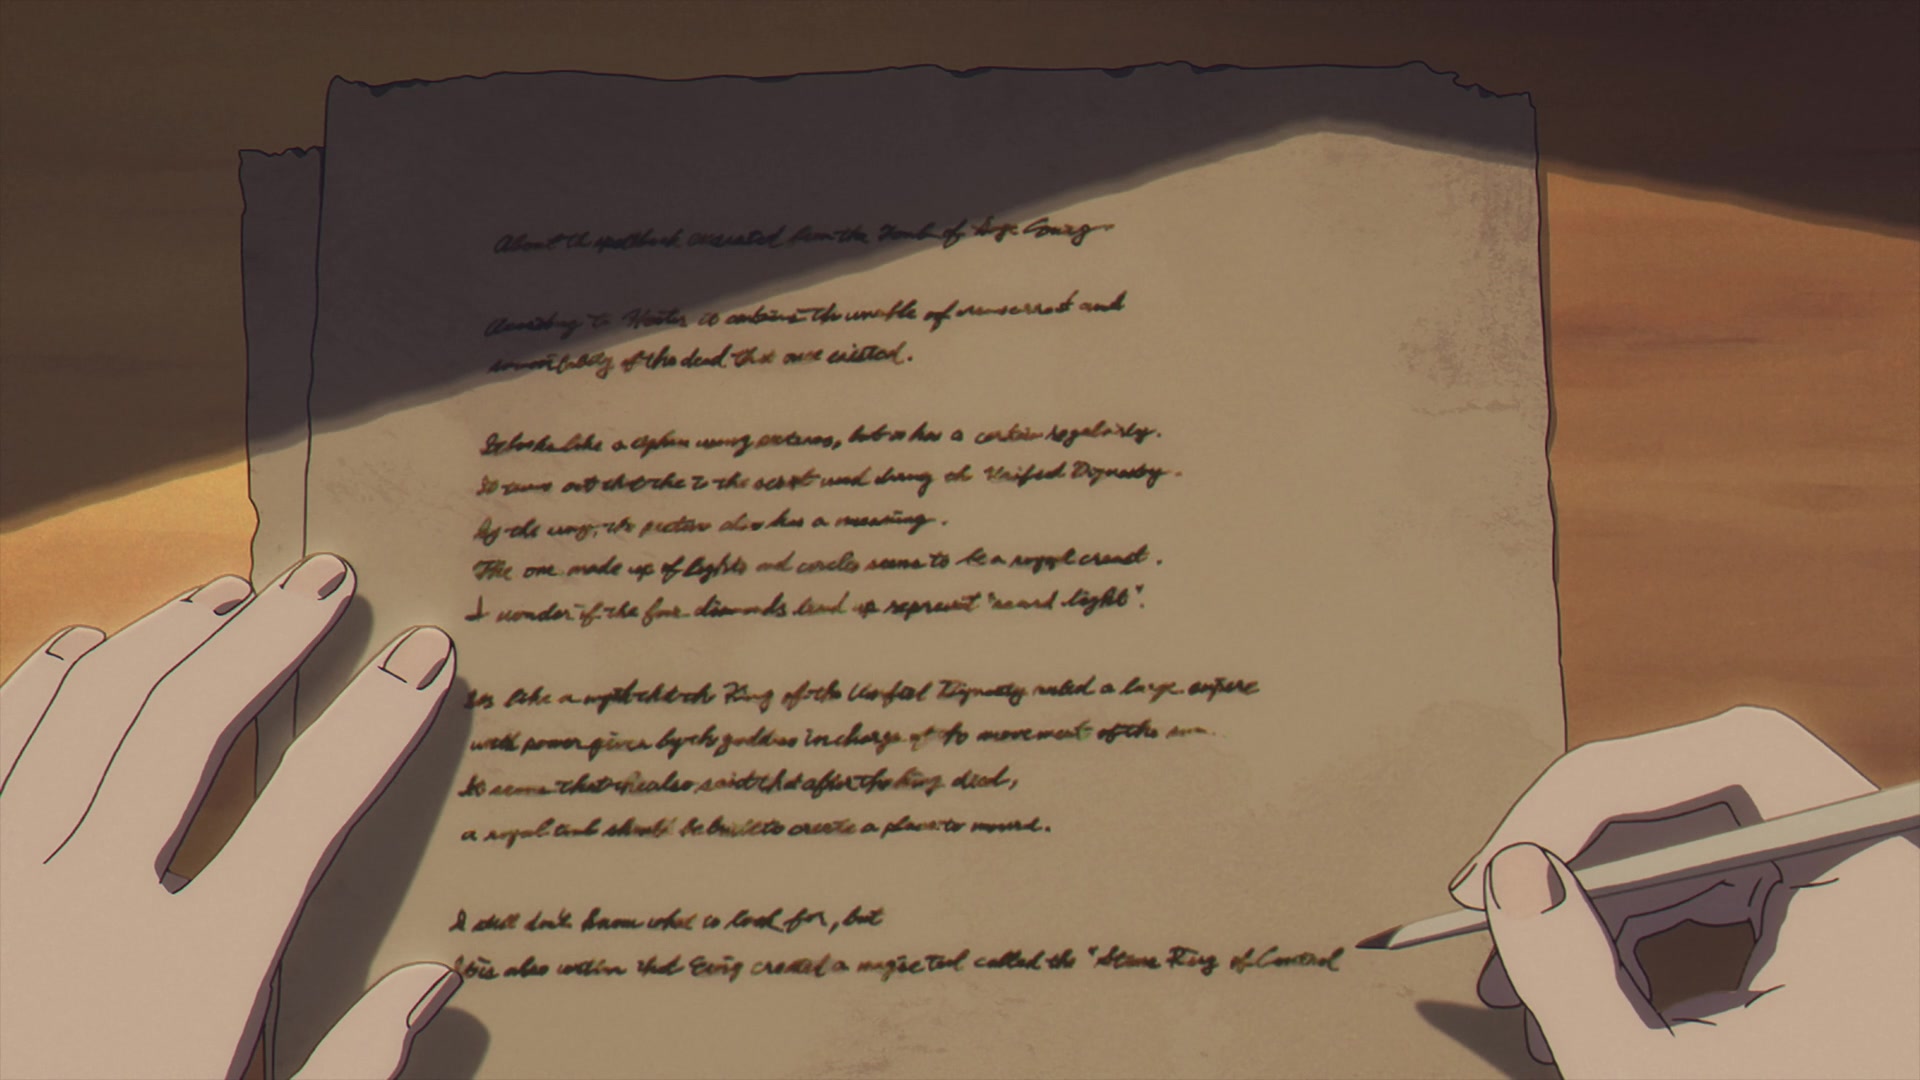 About th spellbook excavated from the Tomb of Ewig
According to it contains th of and
of the dead that once existed.
It looks like a using pictures, but it has a certain regularity.
It turns out that the to the script used during th Unified Dignasty.
By the way, the picture also has a meaning.
The one made up of lights and circles seems to be a royal crest.
I wonder if the four diamonds lined up represent "sword light".
like a myth that th King of the Unified Dignasty ruled a large empire
with power given by th goddess in charge of the movement of the sun.
It seems that also said that after the king died,
a royal tomb should be built to create a place to
I still don't know what to look for, but
It is also written that Ewig created a magic tool called the "Stone Ring of Control